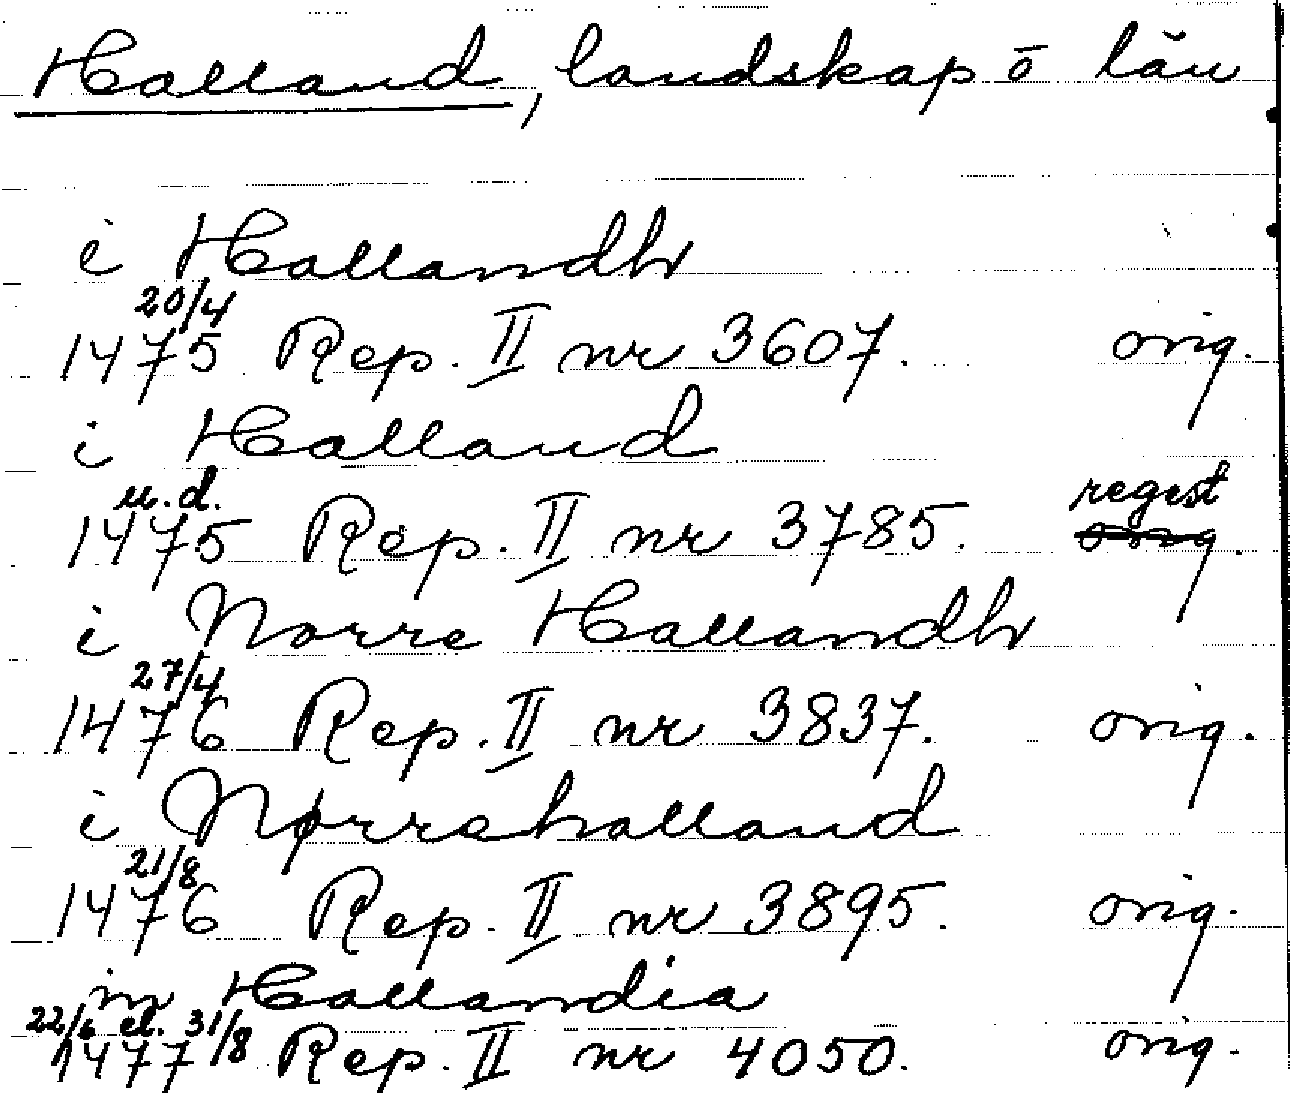 Halland, landskap o län
i Hallandh
20/4
1475 Rep. II nr 3607. orig.
i Halland
u.d. regest
1475 Rep. II nr 3785. orig.
i Norre Hallandh
27/4
1476 Rep. II nr 3837. orig.
i Nørrehalland
21/8
1476 Rep. II nr 3895. orig.
in Hallandia
22/6 el. 31/8
1477 Rep. II nr 4050. orig.